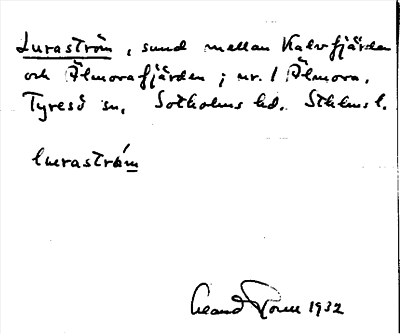 Luraström, sund mellan Kalvfjärden
och Älmorafjärden; nr. 1 Älmora,
Tyresö sn. Sotholms hd. Sthlms l.
luraström
1932